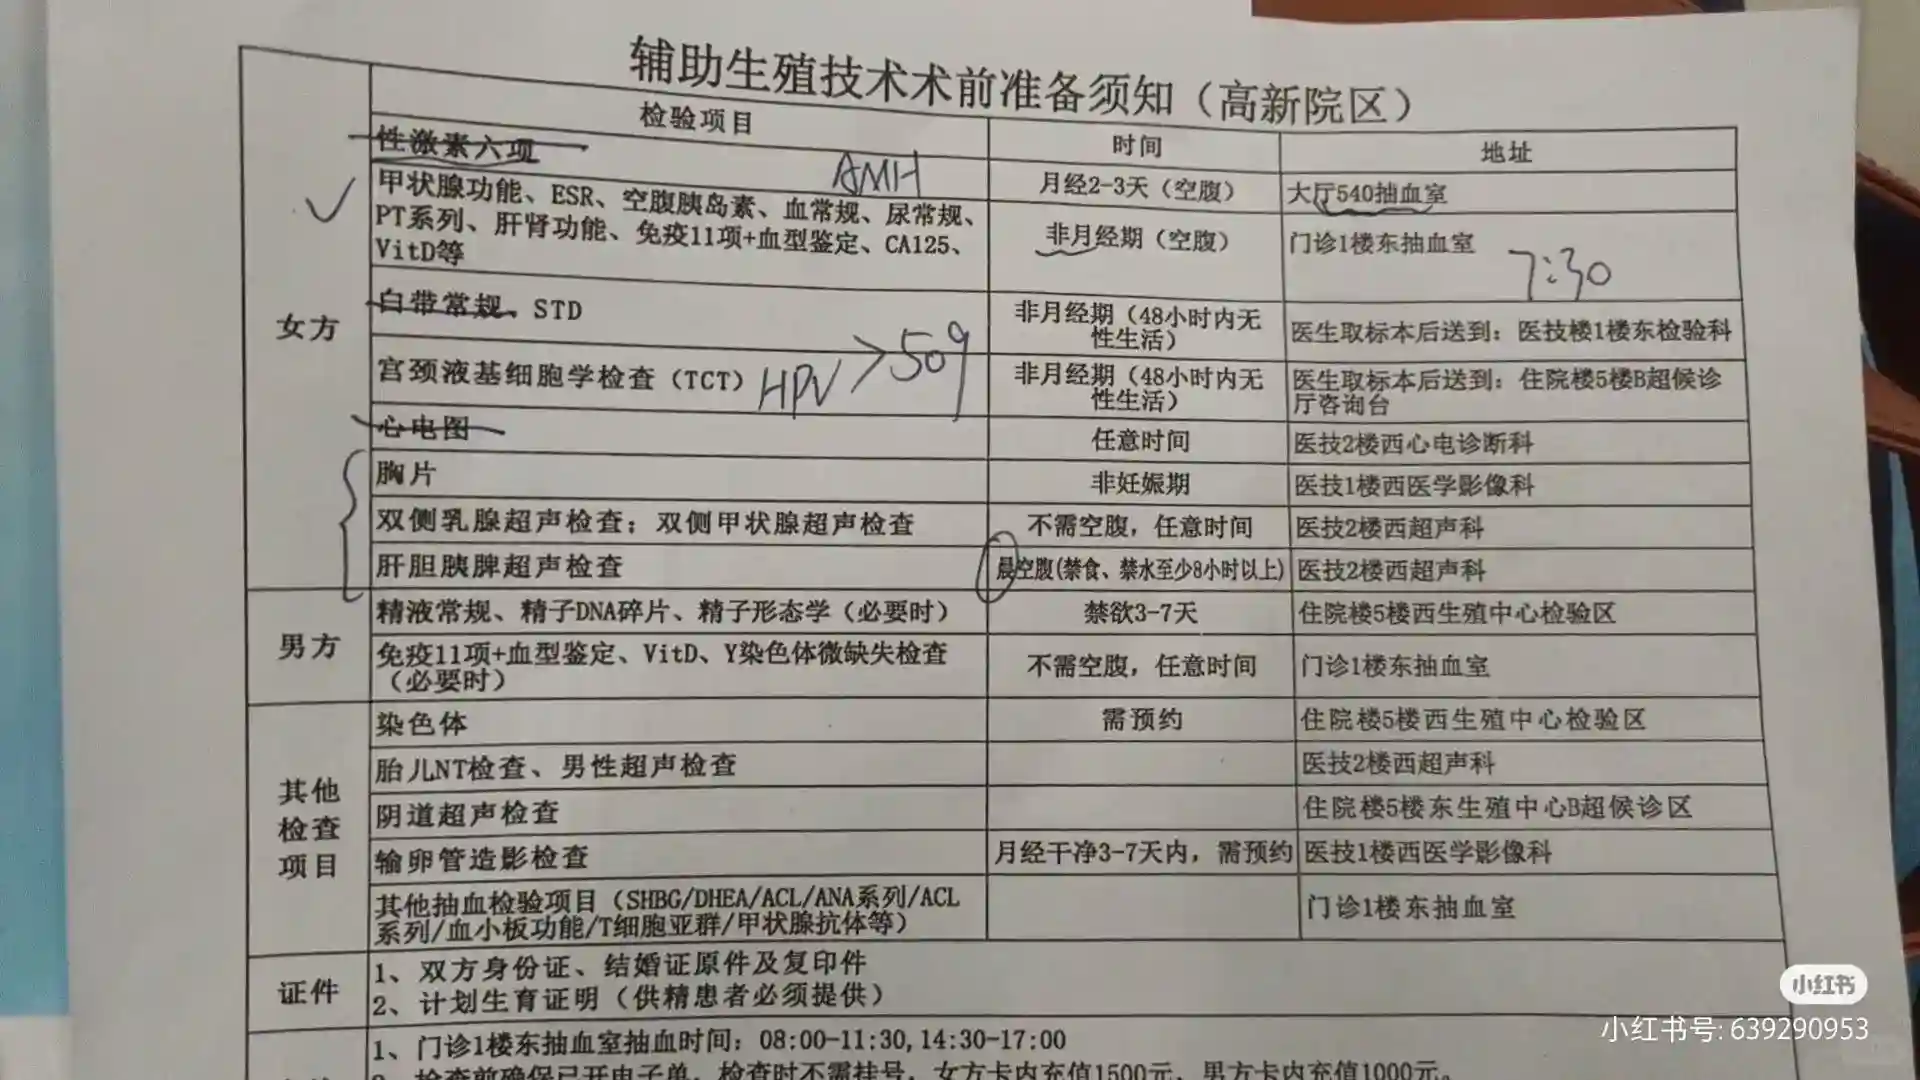 辅助生殖技术术前准备须知（高新院区）
检验项目
时间
地址
女方
性激素六项
AMH
月经2-3天（空腹）
大厅540抽血室
甲状腺功能、ESR、空腹胰岛素、血常规、尿常规、
PT系列、肝肾功能、免疫11项+血型鉴定、CA125、
VitD等
非月经期（空腹）
门诊1楼东抽血室
7:30
白带常规、STD
非月经期（48小时内无
性生活）
医生取标本后送到：医技楼1楼东检验科
宫颈液基细胞学检查（TCT）
HPV
509
非月经期（48小时内无
性生活）
医生取标本后送到：住院楼5楼B超候诊
厅咨询台
心电图
任意时间
医技2楼西心电诊断科
胸片
非妊娠期
医技1楼西医学影像科
双侧乳腺超声检查；双侧甲状腺超声检查
不需空腹，任意时间
医技2楼西超声科
肝胆胰脾超声检查
晨空腹(禁食、禁水至少8小时以上)
医技2楼西超声科
男方
精液常规、精子DNA碎片、精子形态学（必要时）
禁欲3-7天
住院楼5楼西生殖中心检验区
免疫11项+血型鉴定、VitD、Y染色体微缺失检查
（必要时）
不需空腹，任意时间
门诊1楼东抽血室
其他
检查
项目
染色体
需预约
住院楼5楼西生殖中心检验区
胎儿NT检查、男性超声检查
医技2楼西超声科
阴道超声检查
住院楼5楼东生殖中心B超候诊区
输卵管造影检查
月经干净3-7天内，需预约
医技1楼西医学影像科
其他抽血检验项目（SHBG/DHEA/ACL/ANA系列/ACL
系列/血小板功能/T细胞亚群/甲状腺抗体等）
门诊1楼东抽血室
证件
1、双方身份证、结婚证原件及复印件
2、计划生育证明（供精患者必须提供）
1、门诊1楼东抽血室抽血时间：08:00-11:30,14:30-17:00
2、检查前确保已开电子单，检查时不需挂号，女方卡内充值1500元，男方卡内充值1000元。
小红书
小红书号: 639290953